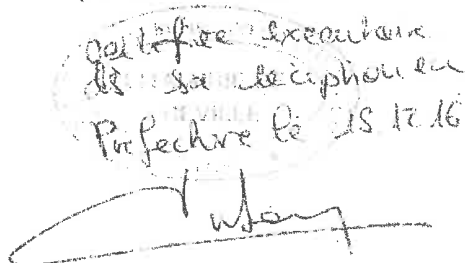 certifiée exécutoire
dès sa réception en
Préfecture le 15 12 16